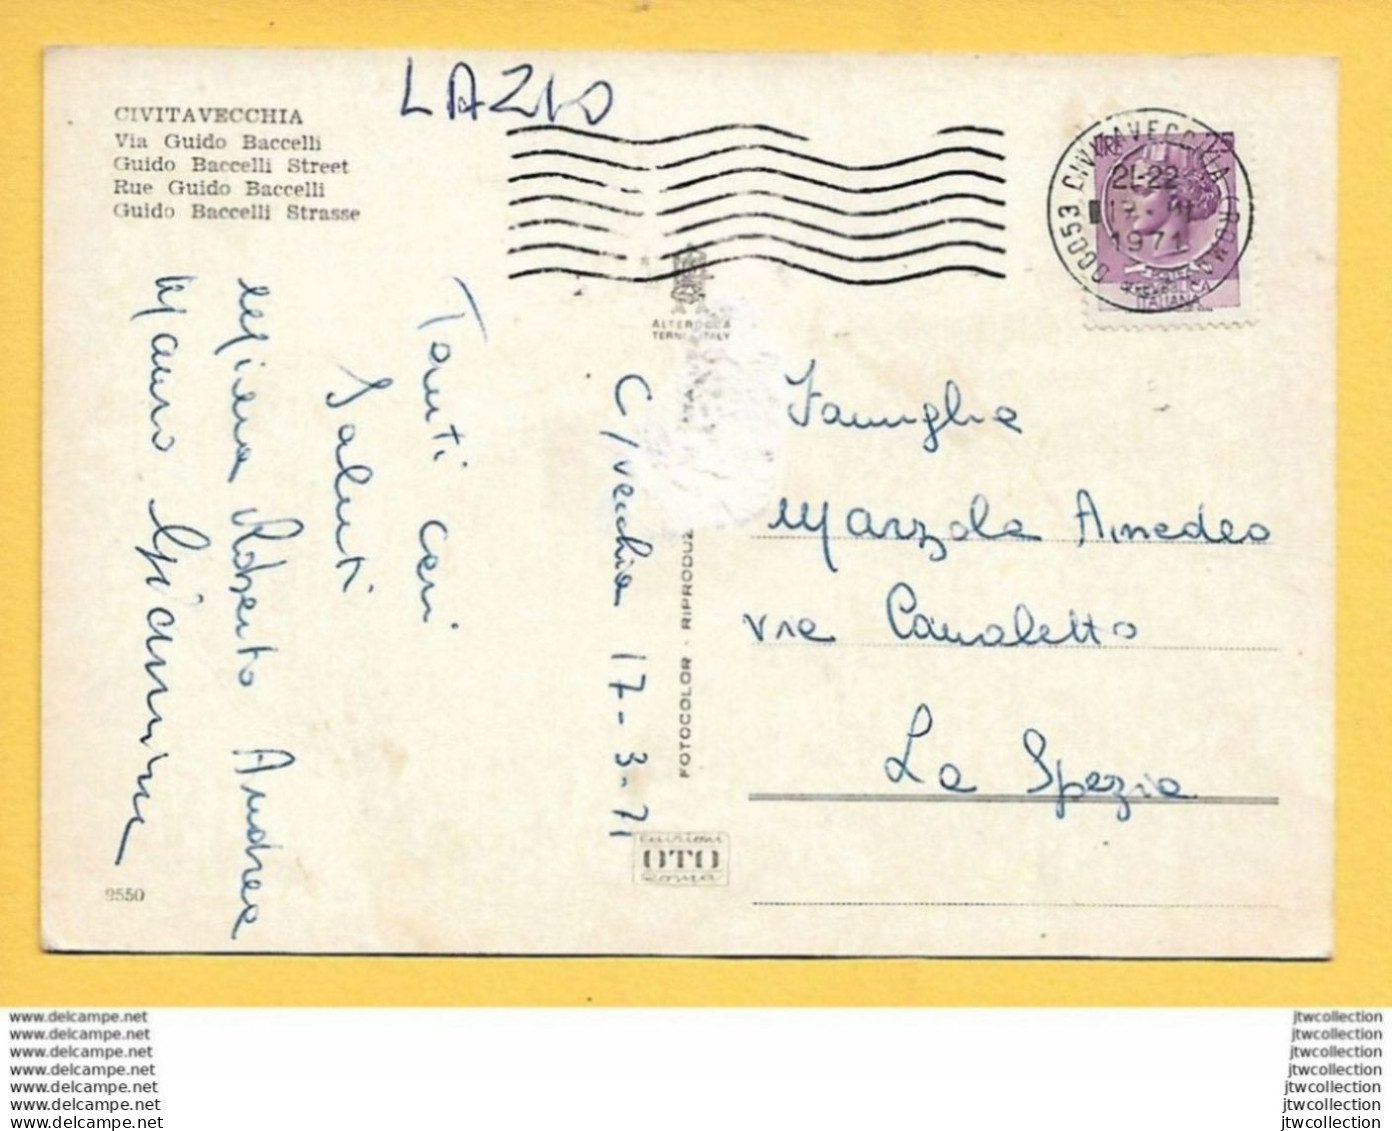 LAZIO
CIVITAVECCHIA
Via Guido Baccelli
Guido Baccelli Street
Rue Guido Baccelli
Guido Baccelli Strasse
LIRE 25
00053 CIVITAVECCHIA (ROMA)
21-22
1971
POSTE
ITALIANA
ALTEROCCA
TERNI ITALY
C/vecchia 17-3-71
Tanti cari
Saluti
Roberto Andrea
Mauro
Famiglia
Marzola Amedeo
via Canaletto
La Spezia
FOTOCOLOR - RIPRODUZ
edizioni
OTO
Roma
9550
www.delcampe.net
www.delcampe.net
www.delcampe.net
www.delcampe.net
www.delcampe.net
www.delcampe.net
www.delcampe.net
jtwcollection
jtwcollection
jtwcollection
jtwcollection
jtwcollection
jtwcollection
jtwcollection